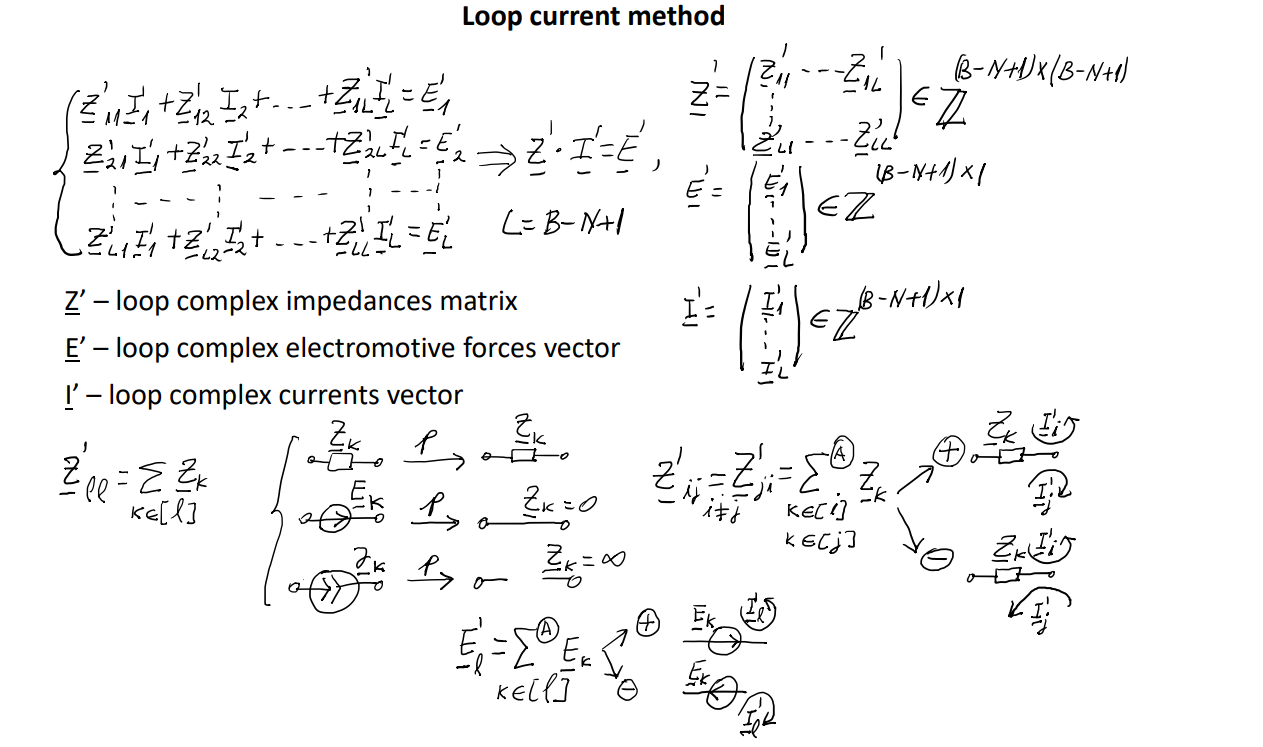 Loop current method
Z'₁₁ I'₁ + Z'₁₂ I'₂ + .... + Z'₁L I'L = E'₁
Z'₂₁ I'₁ + Z'₂₂ I'₂ + .... + Z'₂L I'L = E'₂ ⇒ Z' · I' = E',
Z'L₁ I'₁ + Z'L₂ I'₂ + .... + Z'LL I'L = E'L
L = B-N+1
Z' = ( Z'₁₁ ... Z'₁L
Z'L₁ ... Z'LL ) ∈ ℤ^(B-N+1)×(B-N+1)
E' = ( E'₁
E'L ) ∈ ℤ^(B-N+1)×1
I' = ( I'₁
I'L ) ∈ ℤ^(B-N+1)×1
Z' – loop complex impedances matrix
E' – loop complex electromotive forces vector
I' – loop complex currents vector
Z'ℓℓ = Σ Zk
k∈[ℓ]
Zk P Zk
Ek P Zk = 0
Jk P Zk = ∞
Z'ij = Z'ji = Σ Ⓐ Zk
i≠j k∈[i]
k∈[j]
⊕ Zk I'i
I'j
⊖ Zk I'i
I'j
E'ℓ = Σ Ⓐ Ek
k∈[ℓ]
⊕ Ek I'ℓ
⊖ Ek
I'ℓ